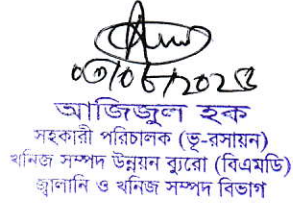 ০৩/০৮/২০২৩
আজিজুল হক
সহকারী পরিচালক (ভূ-রসায়ন)
খনিজ সম্পদ উন্নয়ন ব্যুরো (বিএমডি)
জ্বালানি ও খনিজ সম্পদ বিভাগ